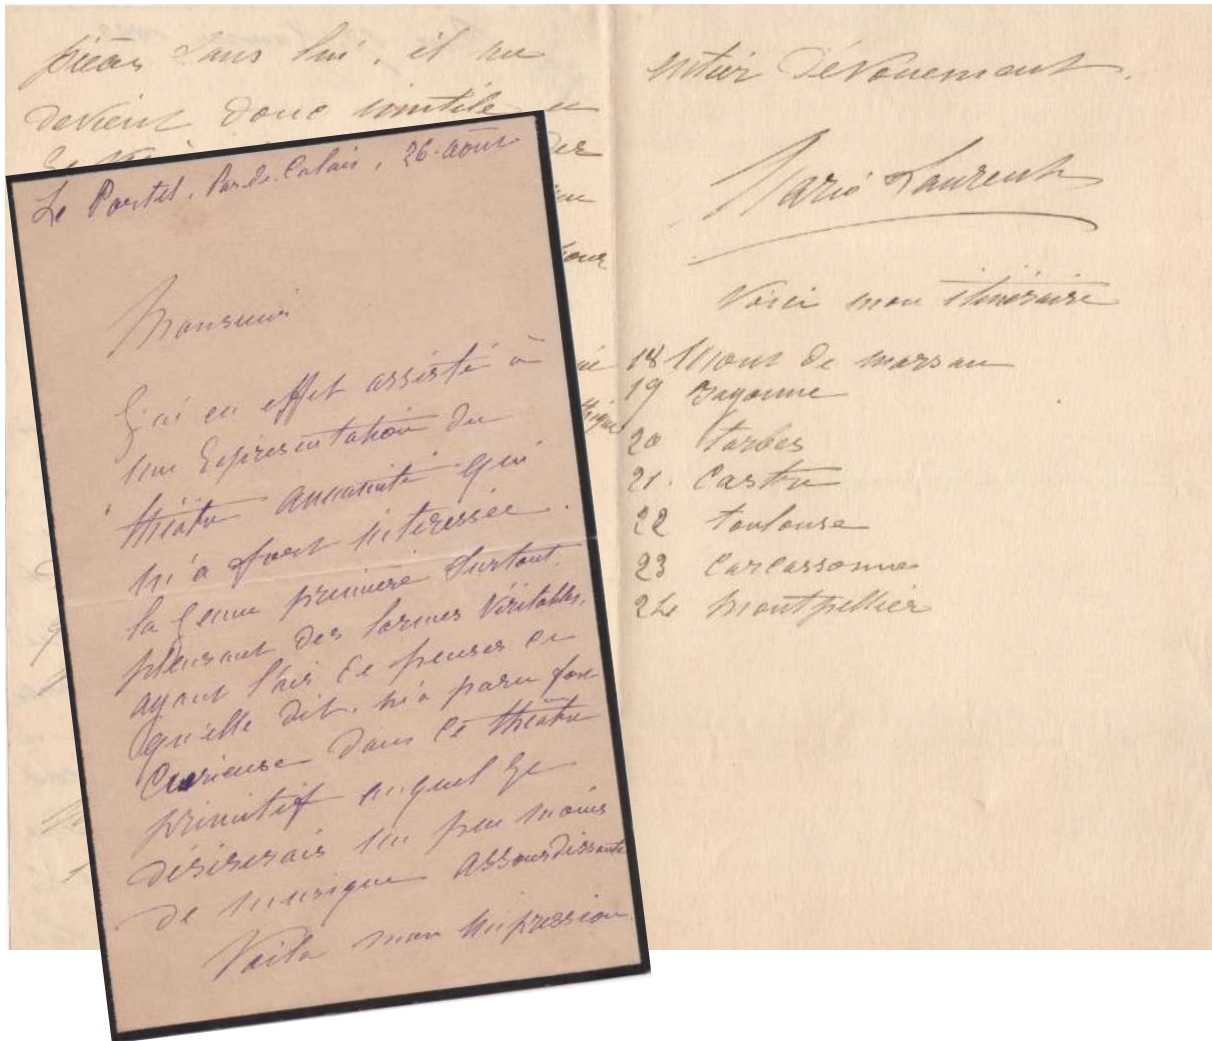 pièces sans lui, il me
devient donc inutile
entier dévouement.
Marie Laurent
Voici mon itinéraire
18 Mont de marsan
19 Bayonne
20 tarbes
21. Castre
22 toulouse
23 Carcassonne
24 Montpellier
Le Portel, Pas-de-Calais, 26 août
Monsieur
J'ai en effet assisté à
une Représentation du
théâtre annamite qui
m'a fort intéressée.
la jeune première surtout
pleurant des larmes véritables,
ayant l'air de penser ce
qu'elle dit, m'a paru fort
Curieuse dans ce théâtre
primitif auquel je
désirerais un peu moins
de musique assourdissante
Voila mon impression.